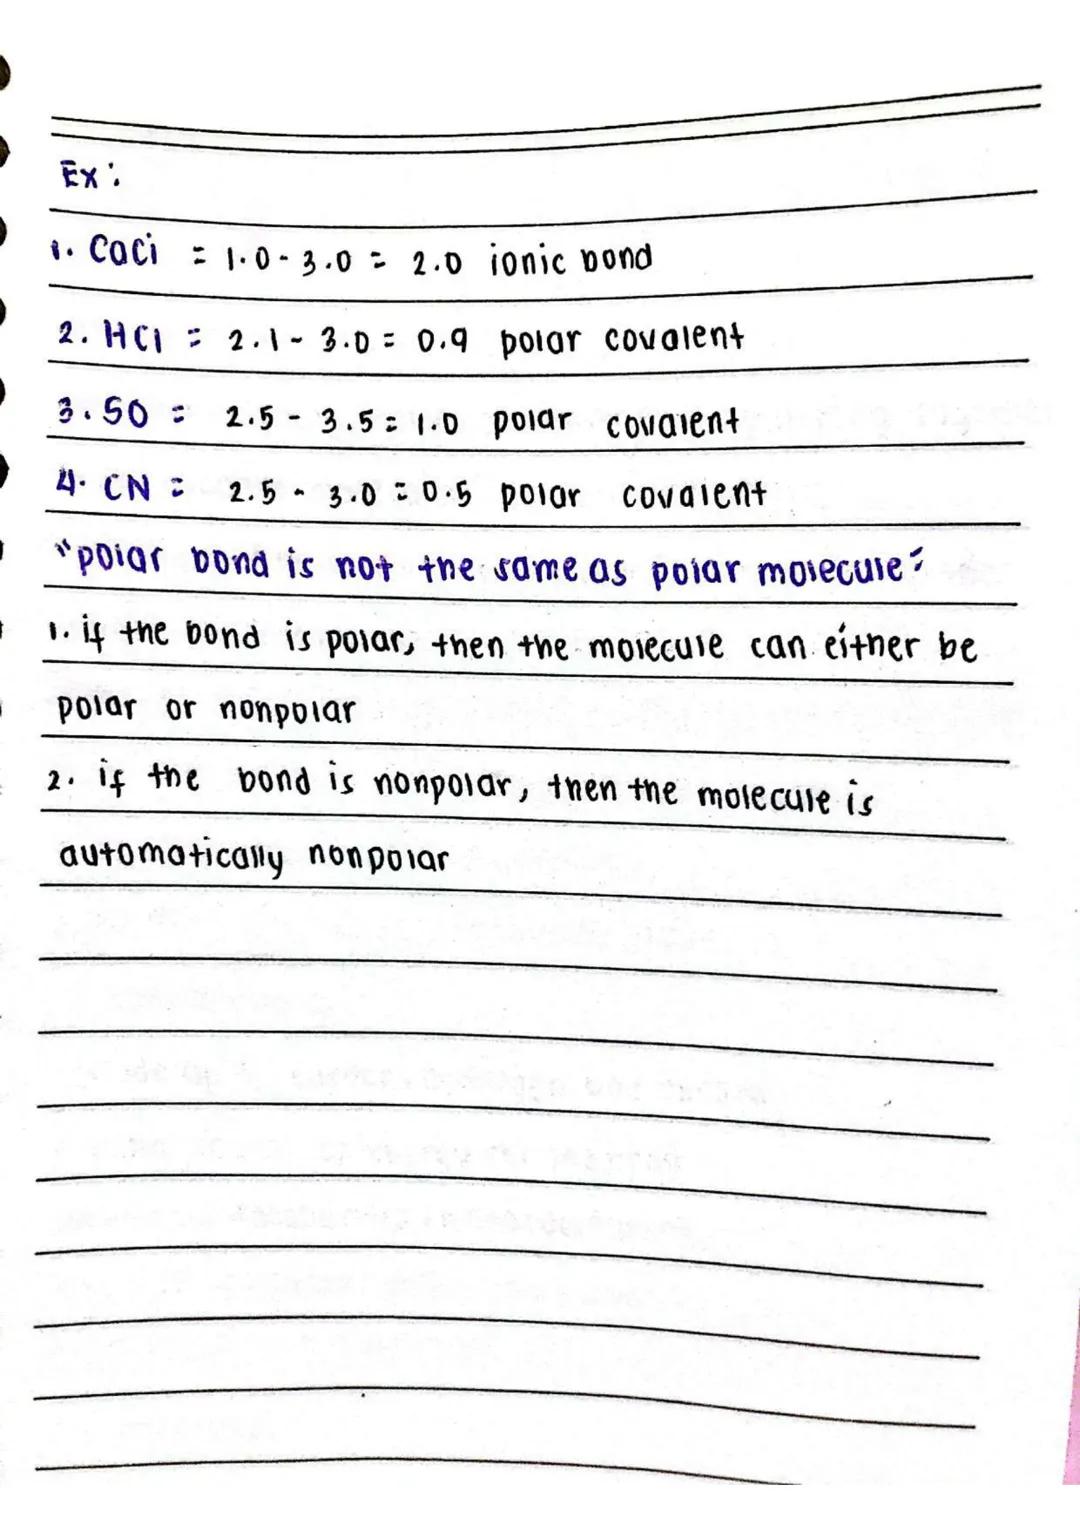 Ex:
1. CaCl = 1.0 - 3.0 = 2.0 ionic bond
2. HCl = 2.1 - 3.0 = 0.9 polar covalent
3. SO = 2.5 - 3.5 = 1.0 polar covalent
4. CN = 2.5 - 3.0 = 0.5 polar covalent
"polar bond is not the same as polar molecule"
1. if the bond is polar, then the molecule can either be
polar or nonpolar
2. if the bond is nonpolar, then the molecule is
automatically nonpolar